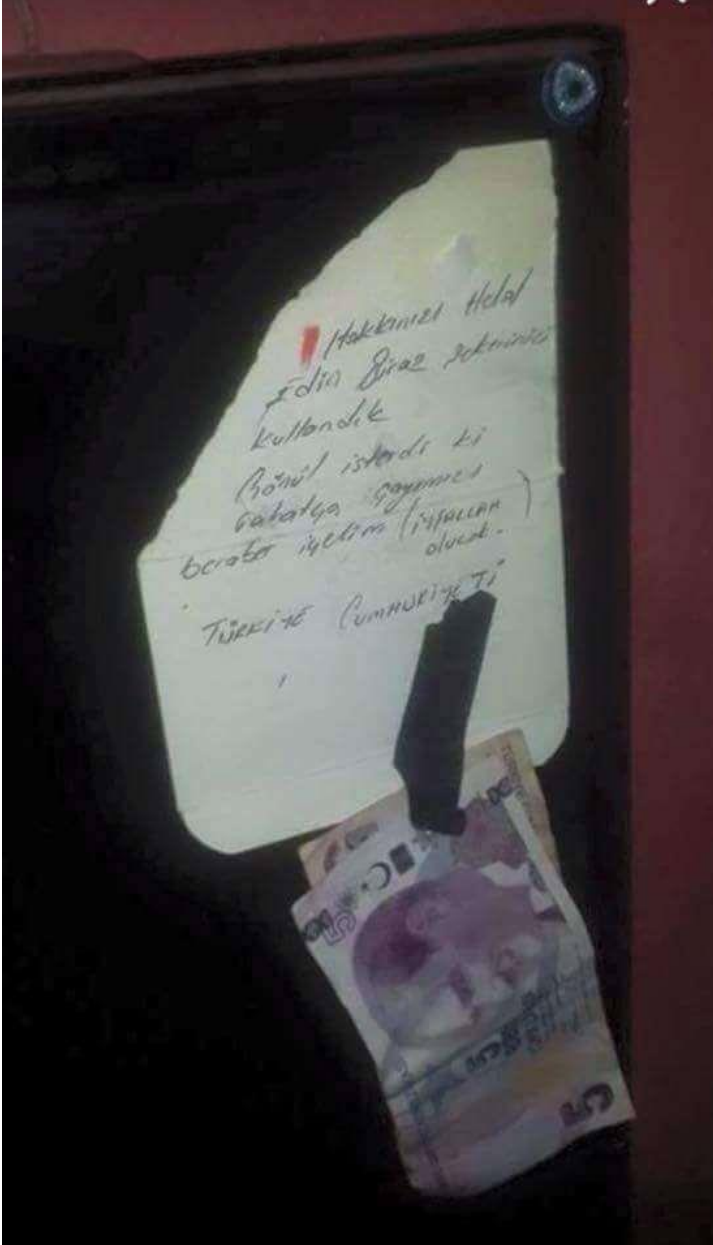 Hakkınızı Helal
Edin Biraz şekerinizi
kullandık
Gönül isterdi ki
rahatça çayımızı
beraber içelim (İNŞALLAH
olucak.
TÜRKİYE CUMHURİYETİ
5
5